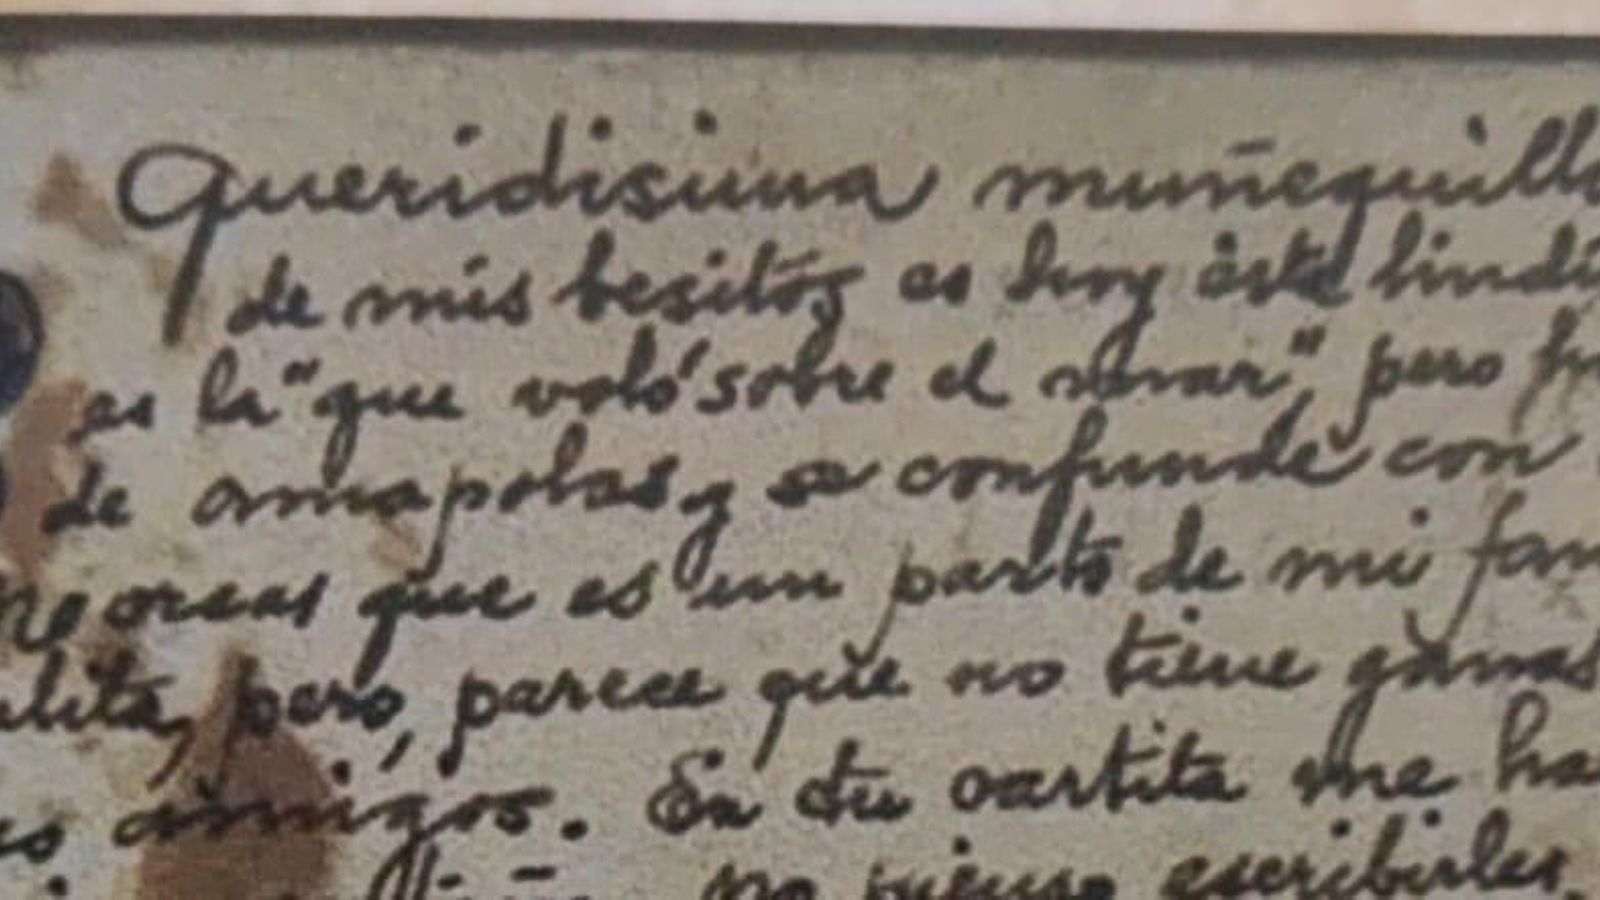 Queridisima muñequill
de mis besitos es hoy éste lindí
es la "que voló sobre el mar", pero
de amapolas y se confunde con
creas que es un parto de mi fan
pero, parece que no tiene ganas
amigos. En tu cartita me ha
no pienso escribirles,